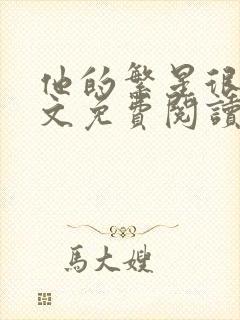 他的繁星很
文免費閱讀
馬大嫂